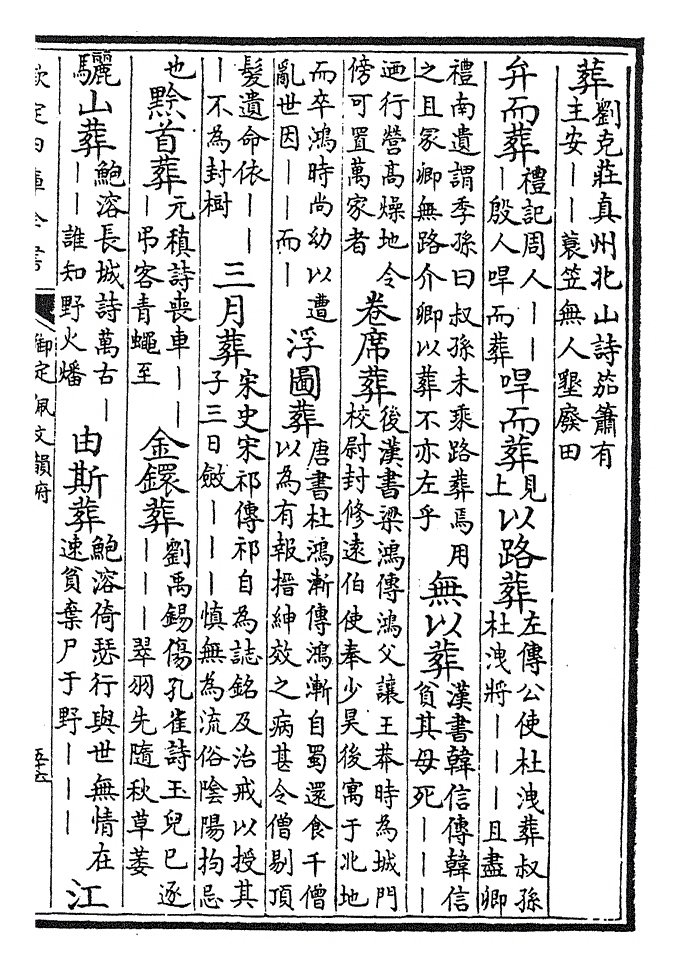 葬劉克莊真州北山詩茄簫有
主安——蓑笠無人墾廢田
弁而葬禮記周人——
—殷人哻而葬
哻而葬見
上
以路葬左傳公使杜洩葬叔孫
杜洩將———且盡卿
禮南遺謂季孫曰叔孫未乘路葬焉用
之且冢卿無路介卿以葬不亦左乎
無以葬漢書韓信傳韓信
貧其母死———
迺行營高燥地令
傍可置萬家者
卷席葬後漢書梁鴻傳鴻父讓王莽時為城門
校尉封修遠伯使奉少昊後寓于北地
而卒鴻時尚幼以遭
亂世因——而—
浮圖葬唐書杜鴻漸傳鴻漸自蜀還食千僧
以為有報搢紳效之病甚令僧剔頂
髮遺命依——
—不為封樹
三月葬宋史宋祁傳祁自為誌銘及治戒以授其
子三日斂———慎無為流俗陰陽拘忌
也
黔首葬元稹詩喪車——
—弔客青蠅至
金鐶葬劉禹錫傷孔雀詩玉兒已逐
———翠羽先隨秋草萎
驪山葬鮑溶長城詩萬古—
——誰知野火燔
由斯葬鮑溶倚瑟行與世無情在
速貧棄尸于野———
江
欽定四庫全書
御定佩文韻府